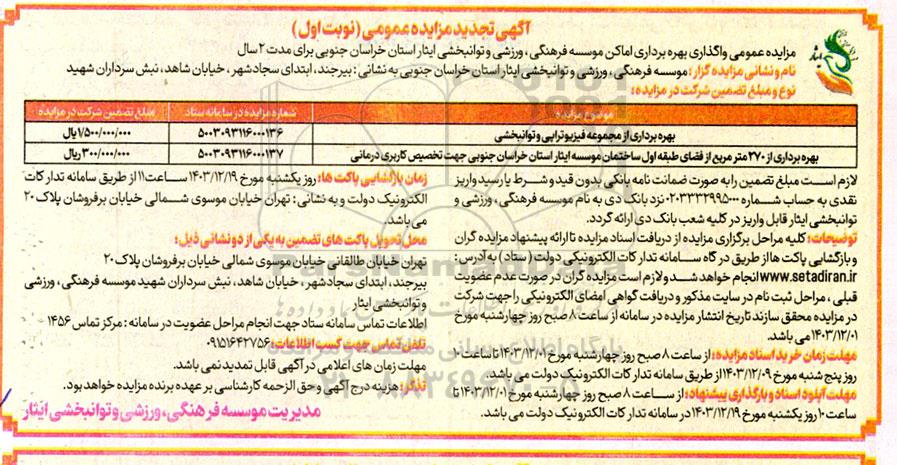 آگهی تجدید مزایده عمومی (نوبت اول)
مزایده عمومی واگذاری بهره برداری اماکن موسسه فرهنگی، ورزشی و توانبخشی ایثار استان خراسان جنوبی برای مدت ۲ سال
نام و نشانی مزایده گزار: موسسه فرهنگی، ورزشی و توانبخشی ایثار استان خراسان جنوبی به نشانی: بیرجند، ابتدای سجادشهر، خیابان شاهد، نبش سرداران شهید
نوع و مبلغ تضمین شرکت در مزایده:
موضوع مزایده شماره مزایده در سامانه ستاد مبلغ تضمین شرکت در مزایده
بهره برداری از مجموعه فیزیوتراپی و توانبخشی ۵۰۰۳۰۹۳۱۱۶۰۰۰۱۳۶ ۱/۵۰۰/۰۰۰/۰۰۰ ریال
بهره برداری از ۲۷۰ متر مربع از فضای طبقه اول ساختمان موسسه ایثار استان خراسان جنوبی جهت تخصیص کاربری درمانی ۵۰۰۳۰۹۳۱۱۶۰۰۰۱۳۷ ۳۰۰/۰۰۰/۰۰۰ ریال
لازم است مبلغ تضمین را به صورت ضمانت نامه بانکی بدون قید و شرط یا رسید واریز
نقدی به حساب شماره ۰۲۰۳۳۳۲۹۹۵۰۰۰ نزد بانک دی به نام موسسه فرهنگی، ورزشی و
توانبخشی ایثار قابل واریز در کلیه شعب بانک دی ارائه گردد.
توضیحات: کلیه مراحل برگزاری مزایده از دریافت اسناد مزایده تا ارائه پیشنهاد مزایده گران
و بازگشایی پاکت ها از طریق درگاه سامانه تدارکات الکترونیکی دولت (ستاد) به آدرس:
www.setadiran.ir انجام خواهد شد و لازم است مزایده گران در صورت عدم عضویت
قبلی، مراحل ثبت نام در سایت مذکور و دریافت گواهی امضای الکترونیکی را جهت شرکت
در مزایده محقق سازند تاریخ انتشار مزایده در سامانه از ساعت ۸ صبح روز چهارشنبه مورخ
۱۴۰۳/۱۲/۰۱ می باشد.
مهلت زمان خرید اسناد مزایده: از ساعت ۸ صبح روز چهارشنبه مورخ ۱۴۰۳/۱۲/۰۱ تا ساعت ۱۰
روز پنج شنبه مورخ ۱۴۰۳/۱۲/۰۹ از طریق سامانه تدارکات الکترونیک دولت می باشد.
مهلت آپلود اسناد و بارگذاری پیشنهاد: از ساعت ۸ صبح روز چهارشنبه مورخ ۱۴۰۳/۱۲/۰۱ تا
ساعت ۱۰ روز یکشنبه مورخ ۱۴۰۳/۱۲/۱۹ در سامانه تدارکات الکترونیک دولت می باشد.
زمان بازگشایی پاکت ها: روز یکشنبه مورخ ۱۴۰۳/۱۲/۱۹ ساعت ۱۱ از طریق سامانه تدارکات
الکترونیک دولت و به نشانی: تهران خیابان موسوی شمالی خیابان برفروشان پلاک ۲۰
می باشد.
محل تحویل پاکت های تضمین به یکی از دو نشانی ذیل:
تهران خیابان طالقانی خیابان موسوی شمالی خیابان برفروشان پلاک ۲۰
بیرجند، ابتدای سجادشهر، خیابان شاهد، نبش سرداران شهید موسسه فرهنگی، ورزشی
و توانبخشی ایثار
اطلاعات تماس سامانه ستاد جهت انجام مراحل عضویت در سامانه: مرکز تماس ۱۴۵۶
تلفن تماس جهت کسب اطلاعات: ۰۹۱۵۱۶۴۲۷۵۶
مهلت زمان های اعلامی در آگهی قابل تمدید نمی باشد.
تذکر: هزینه درج آگهی و حق الزحمه کارشناسی بر عهده برنده مزایده خواهد بود.
مدیریت موسسه فرهنگی، ورزشی و توانبخشی ایثار